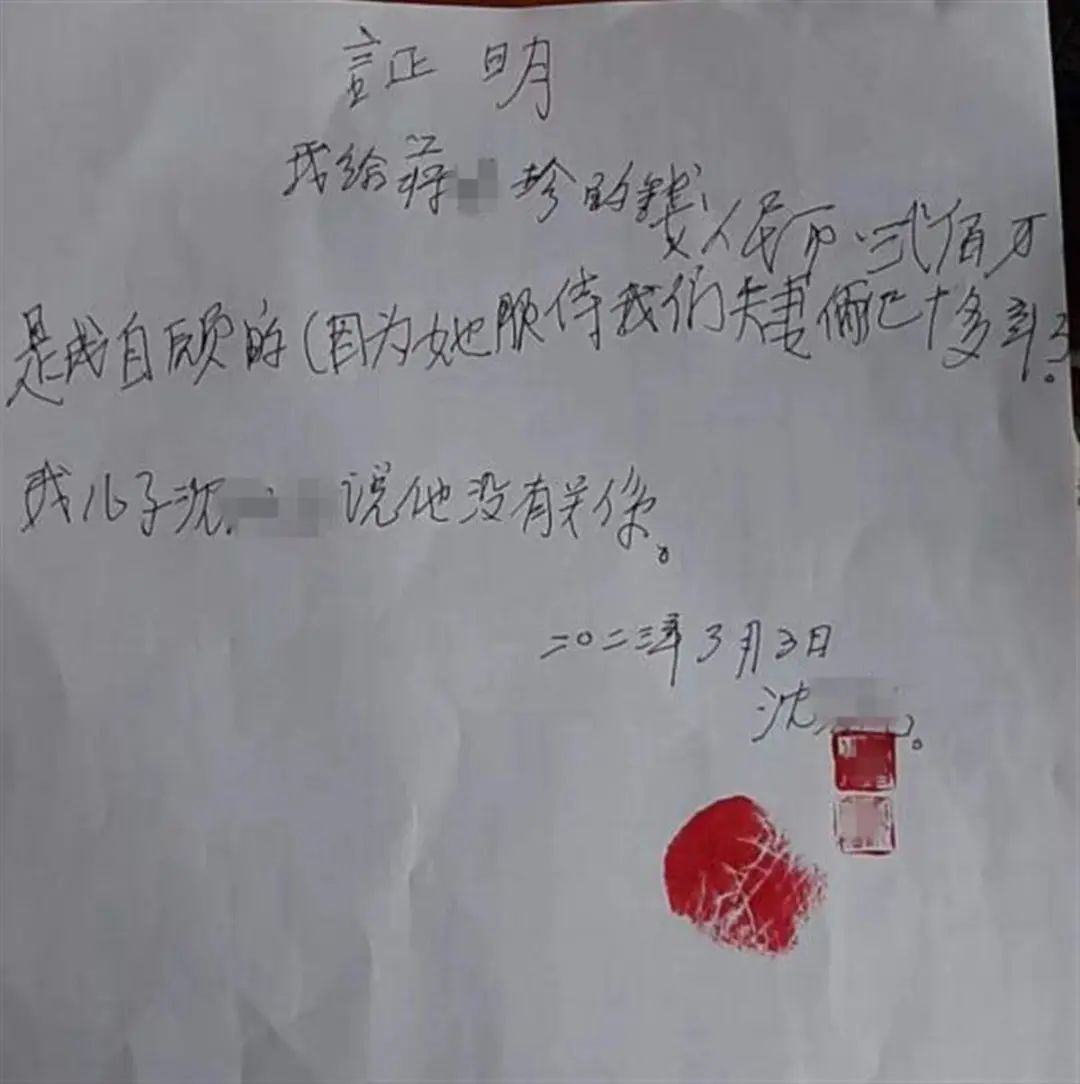 証明
我给蒋 珍的钱人民币.弍佰万
是我自愿的(因为她服侍我们夫妻俩已十多年了。
我儿子沈 说他没有关系。
二〇二三年3月3日
沈